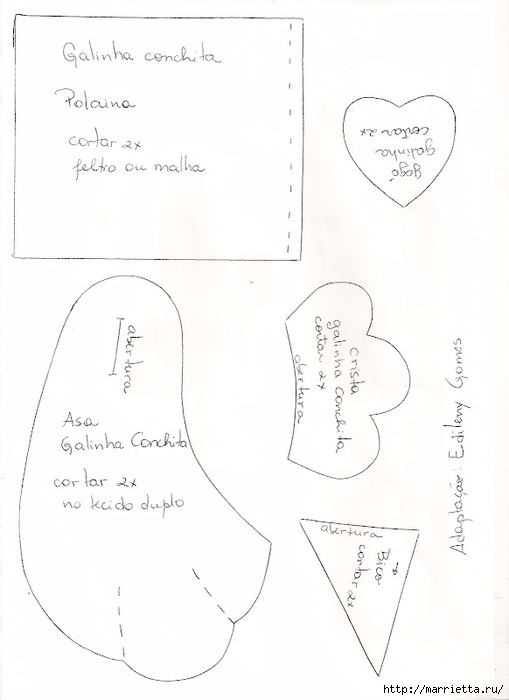 Galinha conchita
Polaina
cortar 2x
feltro ou malha
gogó
galinha
cortar 2x
abertura
Asa
Galinha Conchita
cortar 2x
no tecido duplo
crista
galinha conchita
cortar 2x
abertura
abertura
Bico
cortar 2x
Adaptação: Edileny Gomes
http://marrietta.ru/